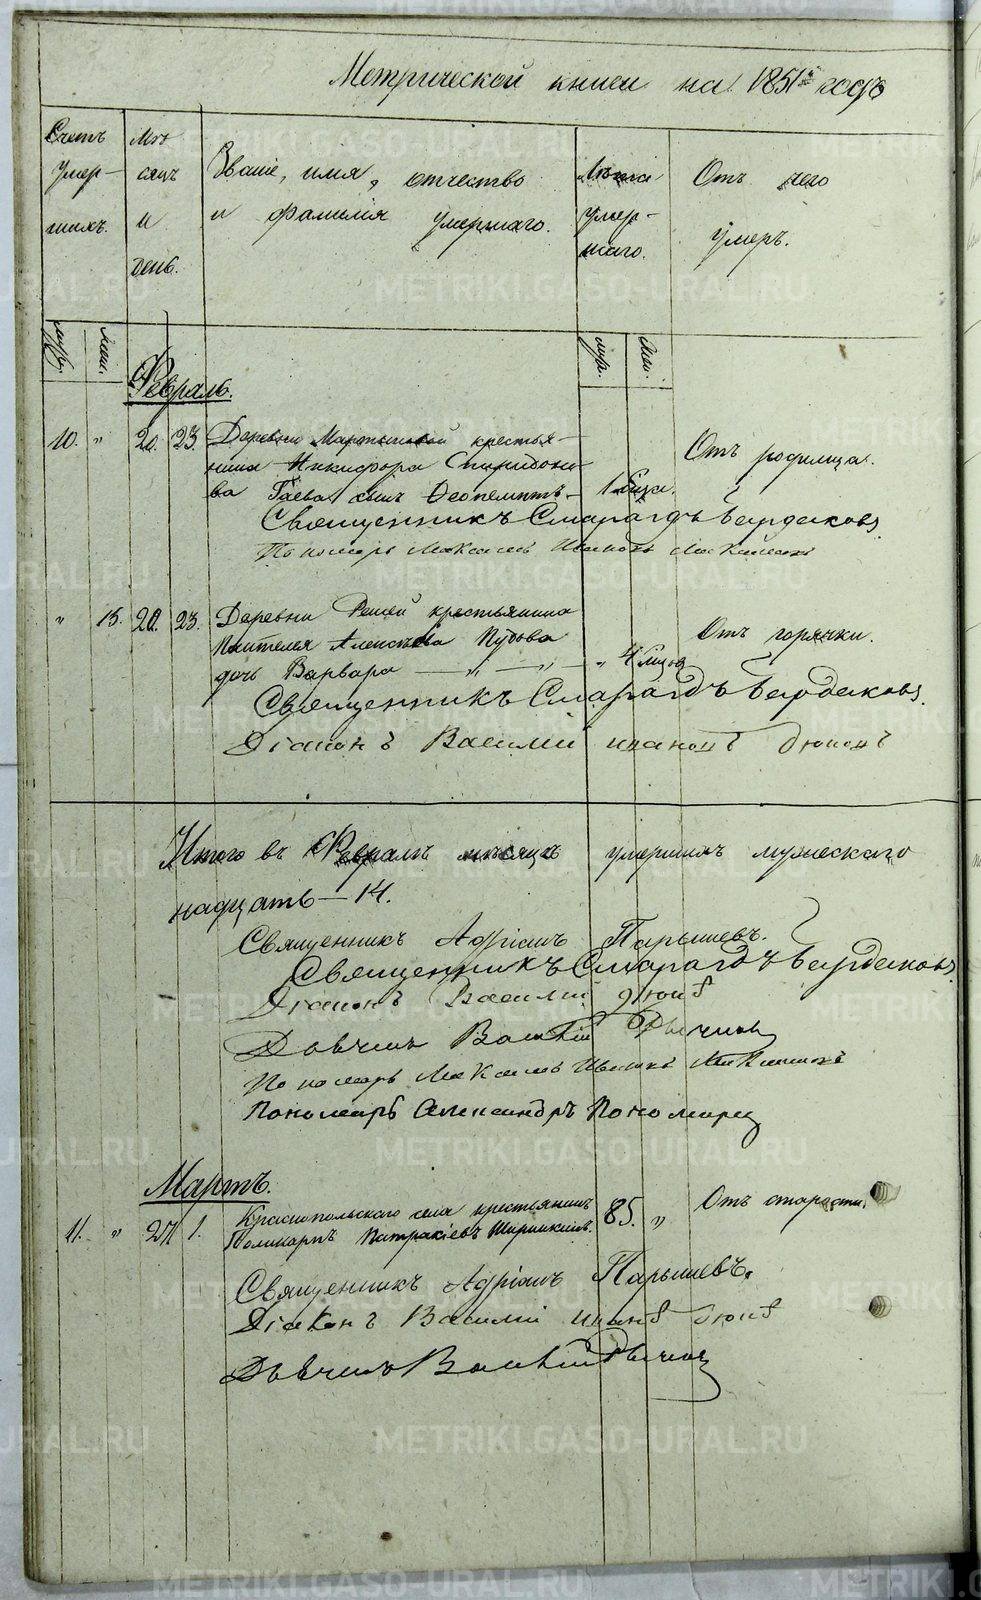 Метрической книги на 1851й годъ
Счетъ умер-шихъ.
Мѣсяцъ и день.
Званіе, имя, отчество
и фамилія умершаго.
Лѣта умер-шаго.
Отъ чего
умеръ.
муж. жен.
муж. жен.
Февраль.
10. " 20. 23. Деревни крестья-
нина Никифора Спиридоно-
ва Гаева сынъ Феопемптъ — 1 Отъ родимца.
Священникъ Смарагдъ Бирдюковъ
Пономарь Максимъ Ивановъ
" 15. 20. 23. Деревни Решей крестьянина
Пантелея Алексѣева Пудова
дочь Варвара — " — " — " 4 Отъ горячки.
Священникъ Смарагдъ Бирдюковъ
Діаконъ Василий
Итого въ Февралѣ мѣсяцѣ умершихъ мужескаго
надцать — 14.
Священникъ Адріанъ Парышевъ.
Священникъ Смарагдъ Бирдюковъ
Діаконъ Василий
Дьячекъ
Пономарь Максимъ Ивановъ
Пономарь Александръ Пономарев
Мартъ.
11. " 27. 1. Краснопольскаго села крестьянинъ
Поликарпъ Патракіевъ 85. " Отъ старости.
Священникъ Адріанъ Парышевъ.
Діаконъ Василий
Дьячекъ
METRIKI.GASO-URAL.RU